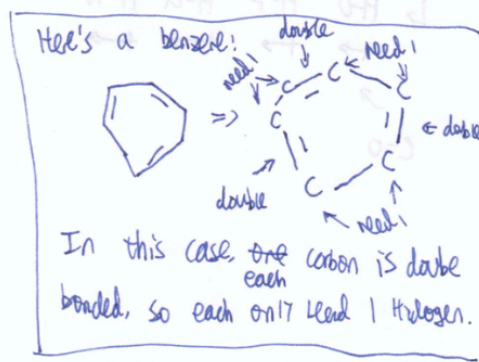 Here's a benzene:
double
need 1
need 1
C
C
C
C
C
C
double
double
need 1
In this case, each carbon is double
bonded, so each only need 1 Hydrogen.